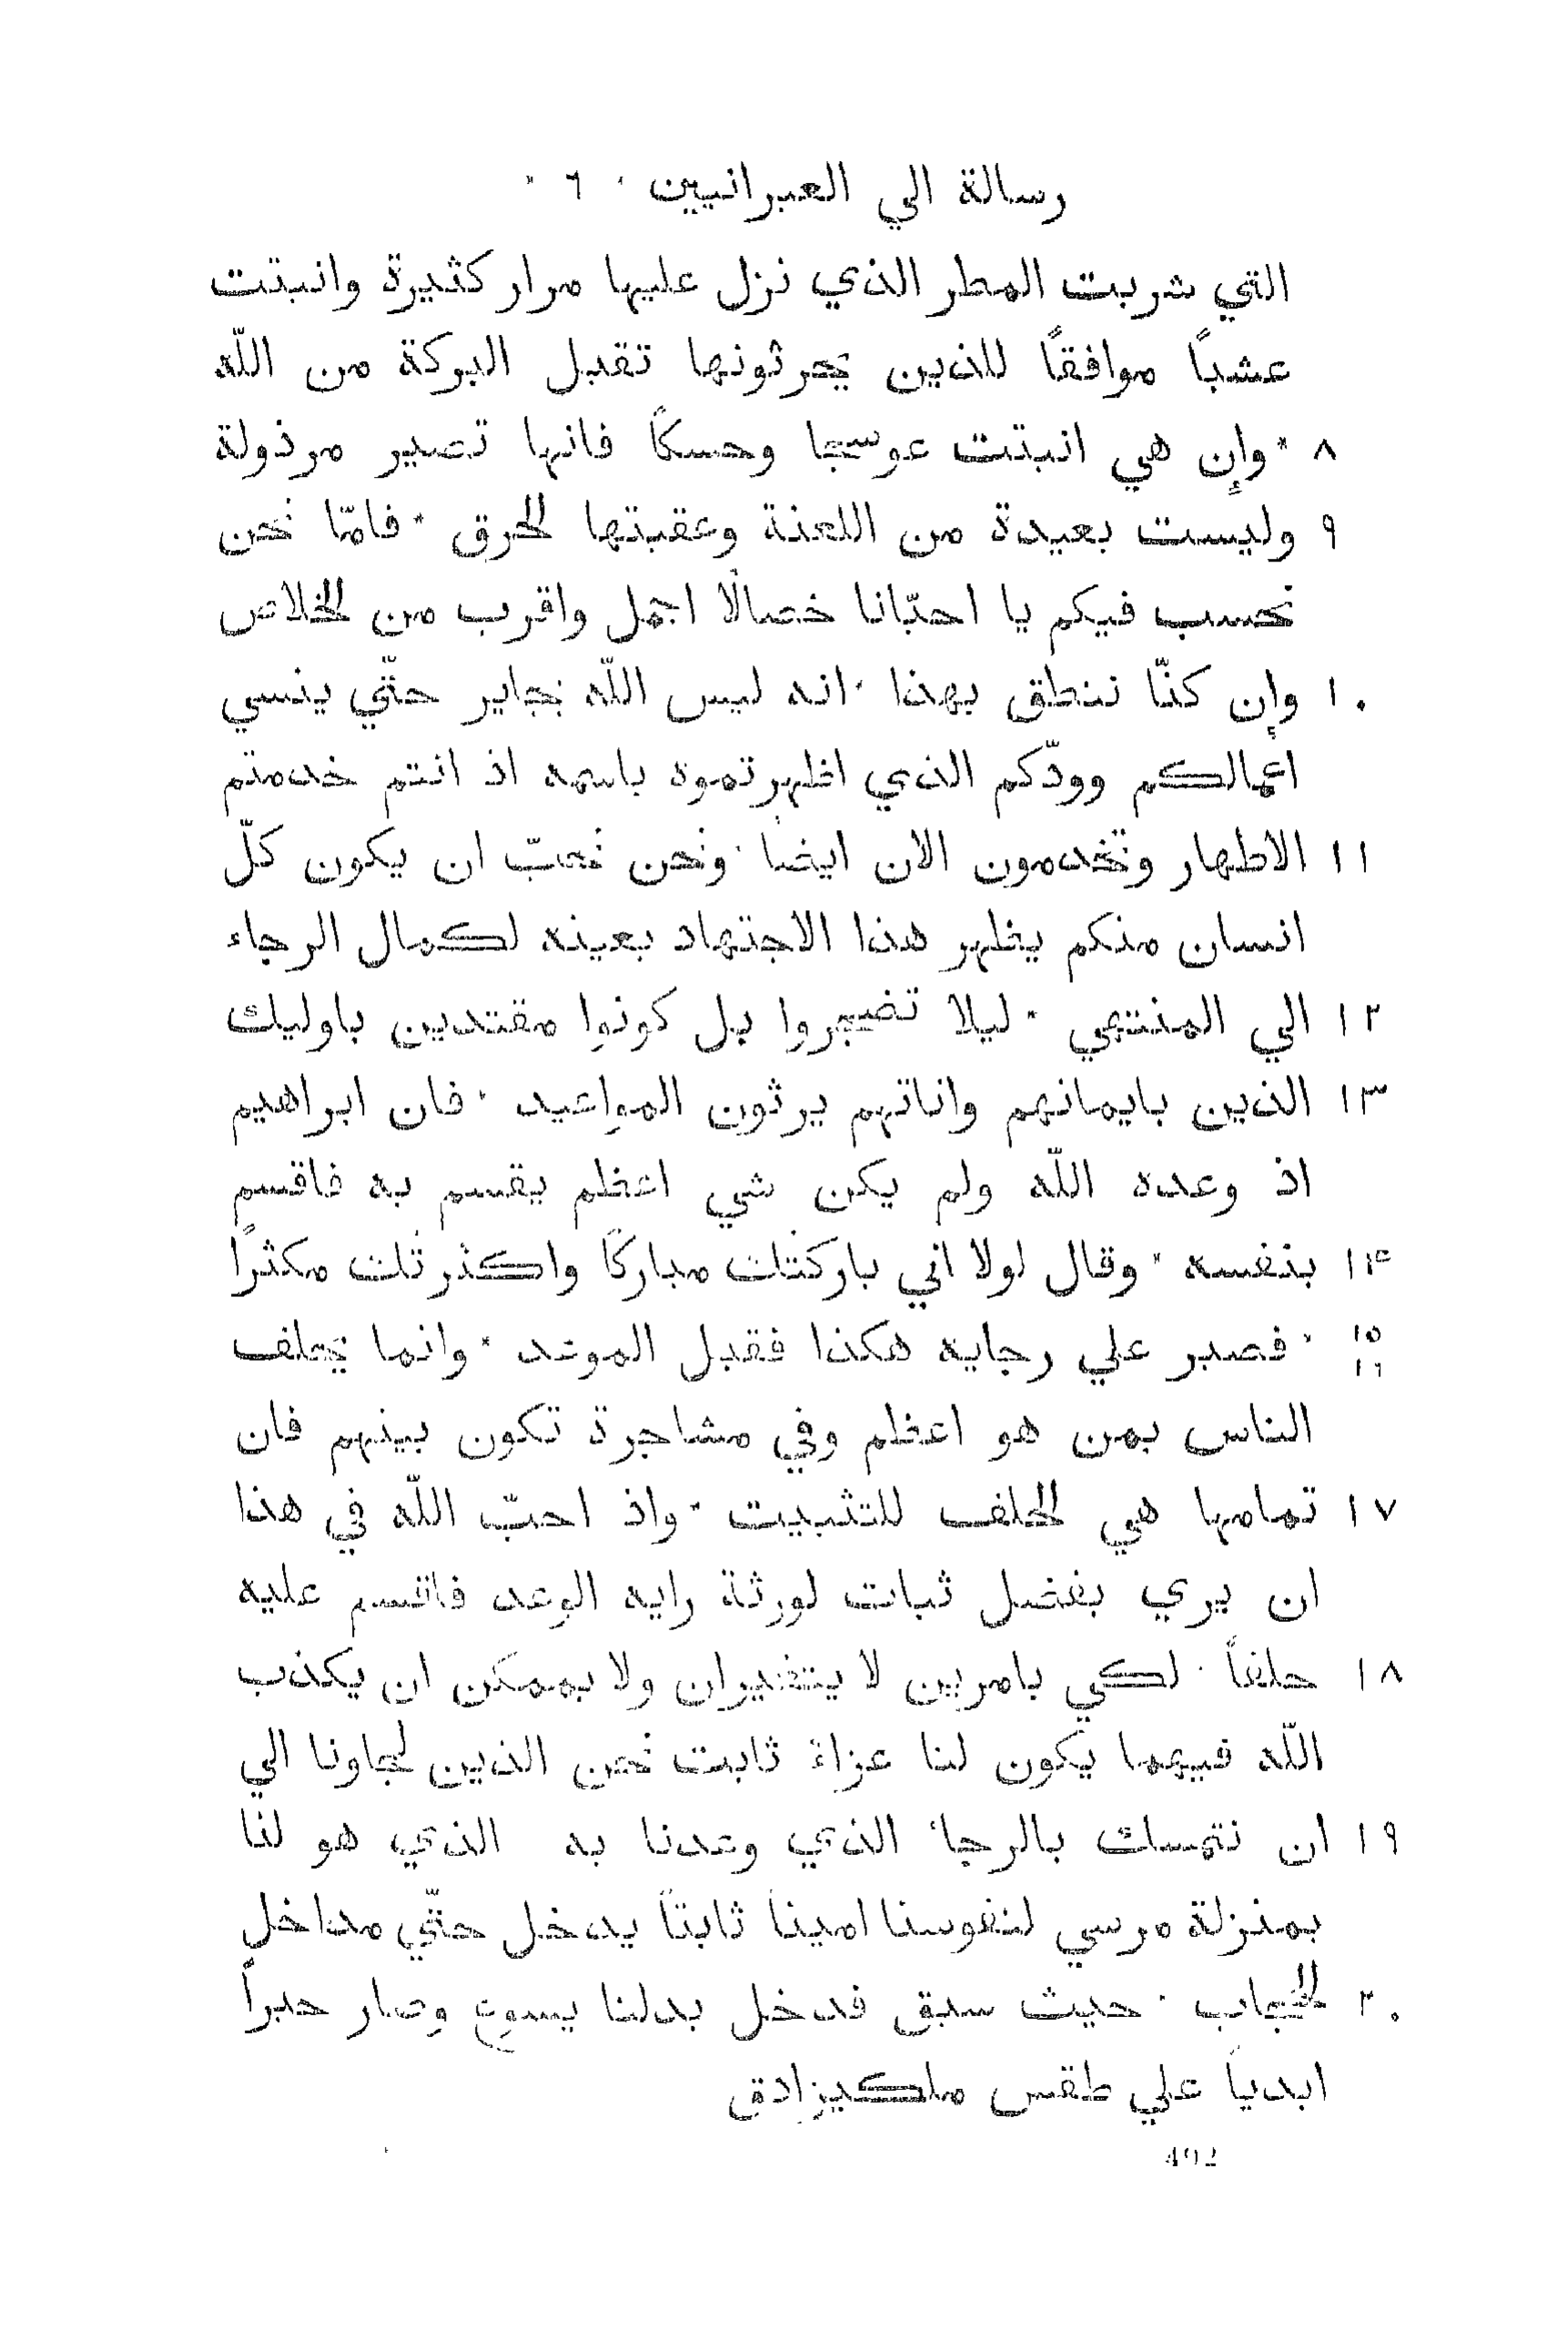 رسالة الي العبرانيين * ٦ *
التي شربت المطر الذي نزل عليها مرار كثيرة وانبتت
عشباً موافقاً للذين يحرثونها تقبل البركة من اللّه
٨ * وإن هي انبتت عوسجا وحسكاً فانها تصير مرذولة
٩ وليست بعيدة من اللعنة وعقبتها للحرق * فامّا نحن
نحسب فيكم يا احبّانا خصالًا اجمل واقرب من للخلاص
١٠ وإن كنّا ننطق بهذا * انه ليس اللّه بجاير حتّي ينسي
اعمالكم وودّكم الذي اظهرتموه باسمه اذ انتم خدمتم
١١ الاطهار وتخدمون الان ايضاً * ونحن نحبّ ان يكون كلّ
انسان منكم يظهر هذا الاجتهاد بعينه لكمال الرجاء
١٢ الي المنتهي * ليلا تضجروا بل كونوا مقتديين باوليك
١٣ الذين بايمانهم واناتهم يرثون المواعيد * فان ابراهيم
اذ وعده اللّه ولم يكن شي اعظم يقسم به فاقسم
١٤ بنفسه * وقال لولا اني باركتك مباركًا واكثرتك مكثرًا
١٥ ١٦ * فصبر علي رجايه هكذا فقبل الموعد * وانما يحلف
الناس بمن هو اعظم وفي مشاجرة تكون بينهم فان
١٧ تمامها هي للحلف للتثبيت * واذ احبّ اللّه في هذا
ان يري بفضل ثبات لورثة رايه الوعد فاقسم عليه
١٨ حلفاً * لكي بامريين لا يتغيران ولا بممكن ان يكذب
اللّه فيهما يكون لنا عزاء ثابت نحن الذين لجاونا الي
١٩ ان نتمسك بالرجاء الذي وعدنا به الذي هو لنا
بمنزلة مرسي لنفوسنا اميناً ثابتاً يدخل حتّي مداخل
٢٠ للحجاب * حيث سبق فدخل بدلنا يسوع وصار حبراً
ابدياً علي طقس ملكيزادق
492